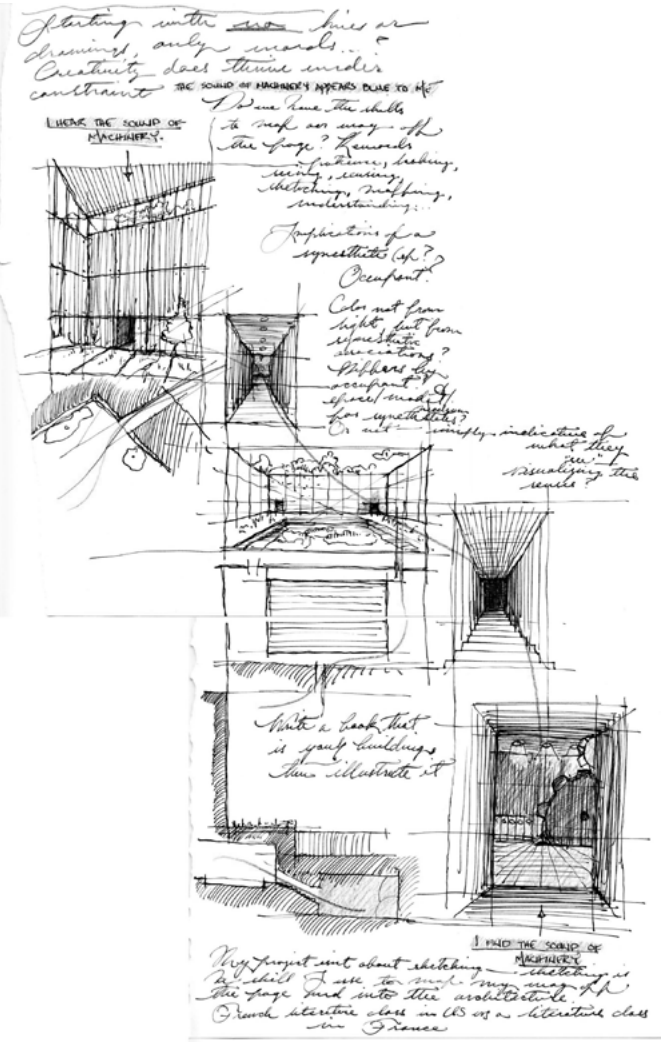 Starting with no lines or
drawings, only words...?
Creativity does thrive under
constraint
THE SOUND OF MACHINERY APPEARS DONE TO ME
Do we have the skills
to map our way off
the page? Rewards
patience, looking,
sketching, mapping,
understanding...
I HEAR THE SOUND OF
MACHINERY.
Implications of a
synesthete
Occupant?
Color not from
light, but from
synesthetic
associations?
Differs by
occupant
space/mode
for synesthetes?
Or not simply indicative of
what they
"see"
visualizing the
Write a book that
is your building,
then illustrate it
I FIND THE SOUND OF
MACHINERY
My project isn't about sketching — sketching is
the skill I use to map my way off
the page and into the architecture.
French literature class in US vs a literature class
in France